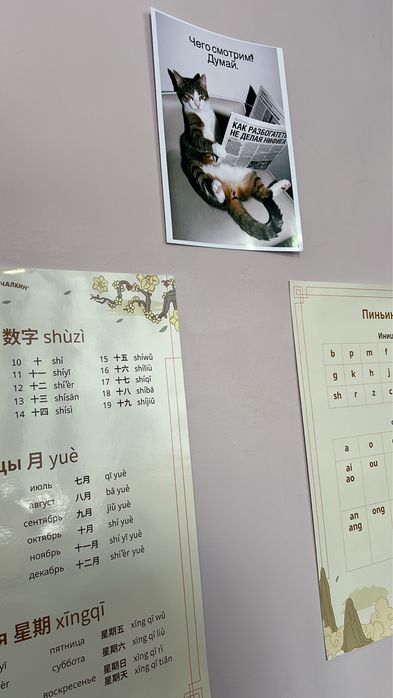 Чего смотрим?
Думай.
КАК РАЗБОГАТЕТЬ
НЕ ДЕЛАЯ НИФИГА
ЧАЛКИН
数字 shùzì
10 十 shí
11 十一 shíyī
12 十二 shí'èr
13 十三 shísān
14 十四 shísì
15 十五 shíwǔ
16 十六 shíliù
17 十七 shíqī
18 十八 shíbā
19 十九 shíjiǔ
цы 月 yuè
июль 七月 qī yuè
август 八月 bā yuè
сентябрь 九月 jiǔ yuè
октябрь 十月 shí yuè
ноябрь 十一月 shí yī yuè
декабрь 十二月 shí'èr yuè
я 星期 xīngqī
пятница 星期五 xīng qī wǔ
суббота 星期六 xīng qī liù
воскресенье 星期日 xīng qī rì
星期天 xīng qī tiān
yī
èr
Пиньин
Иниц
b p m f
g k h j
sh r z c
a o
ai ou
ao
an ong
ang